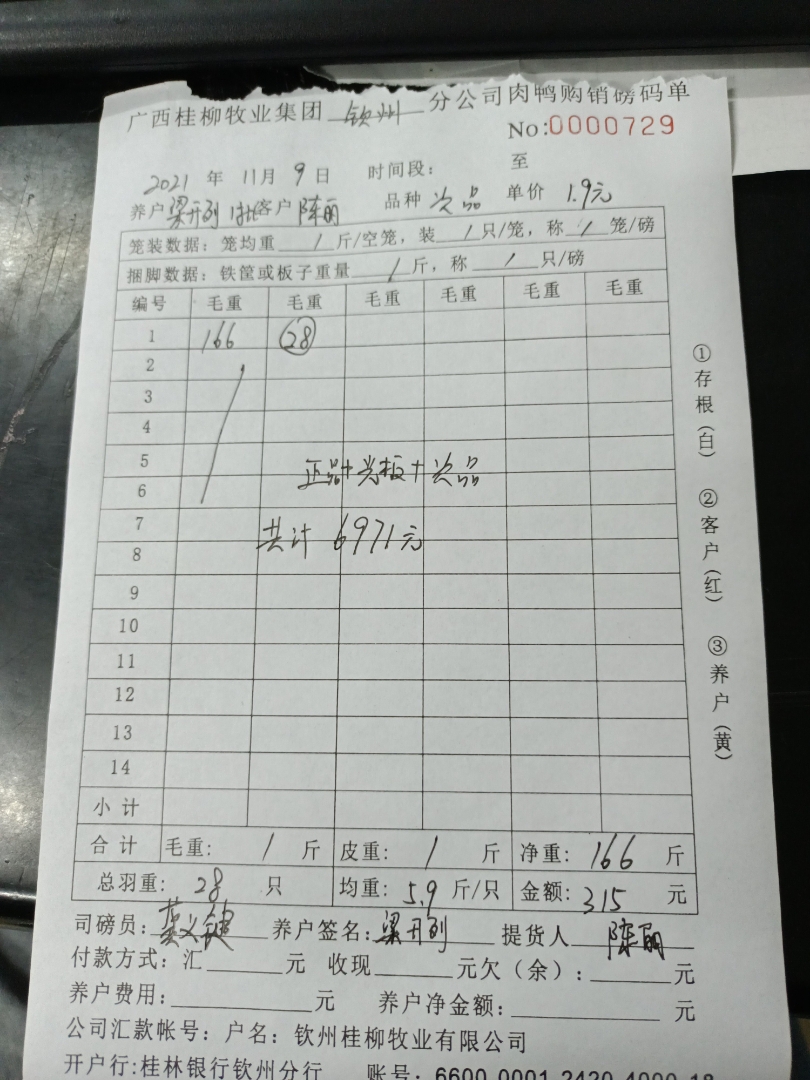 广西桂柳牧业集团 钦州 分公司肉鸭购销磅码单
No:0000729
2021 年 11月 9 日 时间段: 至
养户 梁开列 1批 客户 陈丽 品种 次品 单价 1.9元
笼装数据: 笼均重 / 斤/空笼, 装 / 只/笼, 称 / 笼/磅
捆脚数据: 铁筐或板子重量 / 斤, 称 / 只/磅
编号 毛重 毛重 毛重 毛重 毛重 毛重
1 166 28
2
3
4
5
正品+光板+次品
6
7
共计 6971元
8
9
10
11
12
13
14
小计
合计 毛重: / 斤 皮重: / 斤 净重: 166 斤
总羽重: 28 只 均重: 5.9 斤/只 金额: 315 元
司磅员: 养户签名: 梁开列 提货人 陈丽
付款方式: 汇 元 收现 元欠(余): 元
养户费用: 元 养户净金额: 元
公司汇款帐号: 户名: 钦州桂柳牧业有限公司
开户行:桂林银行钦州分行 账号: 6600 0001 2420 4000 18
①存根(白) ②客户(红) ③养户(黄)